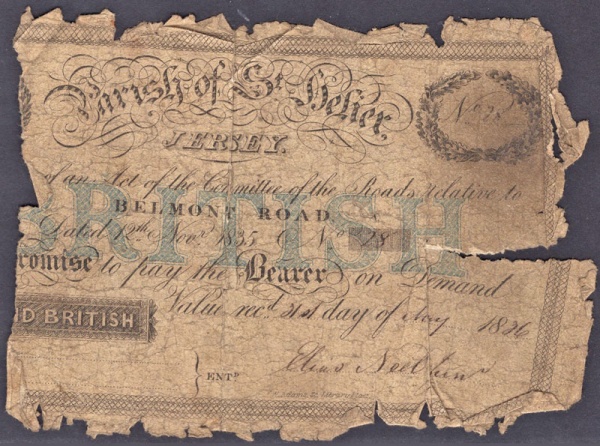 Parish of St Helier
JERSEY.
No 28
of an Act of the Committee of the Roads relative to
BELMONT ROAD
BRITISH
Dated 12th Novr 1835 & No 28
romise to pay the Bearer on Demand
Value recd 31st day of May 1836
D BRITISH
ENTD